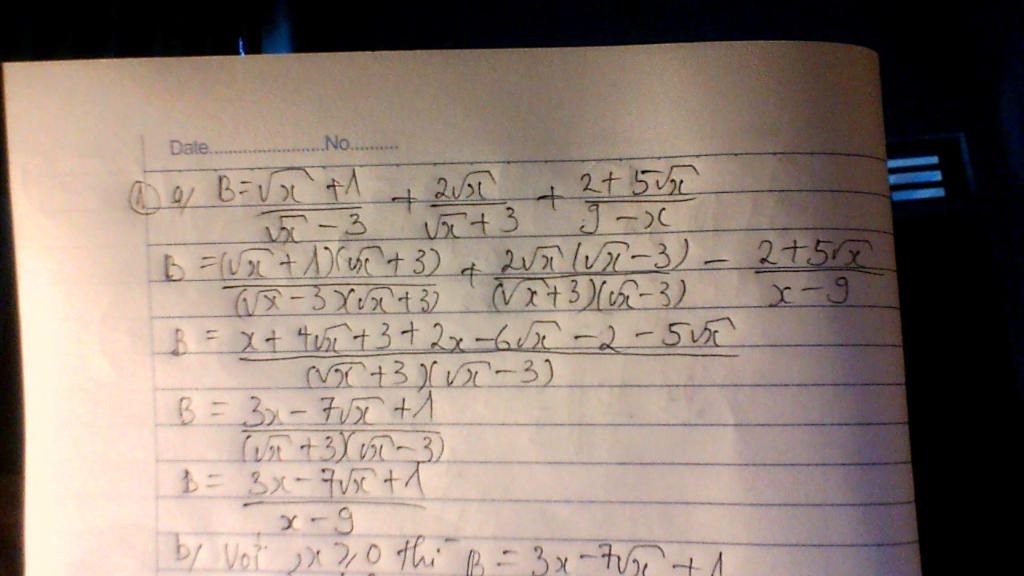 Date........................No..........
① a/ B = (√x + 1)/(√x - 3) + (2√x)/(√x + 3) + (2 + 5√x)/(9 - x)
B = ((√x + 1)(√x + 3))/((√x - 3)(√x + 3)) + (2√x (√x - 3))/((√x + 3)(√x - 3)) - (2 + 5√x)/(x - 9)
B = (x + 4√x + 3 + 2x - 6√x - 2 - 5√x)/((√x + 3)(√x - 3))
B = (3x - 7√x + 1)/((√x + 3)(√x - 3))
B = (3x - 7√x + 1)/(x - 9)
b/ Với x ≥ 0 thì B = 3x - 7√x + 1